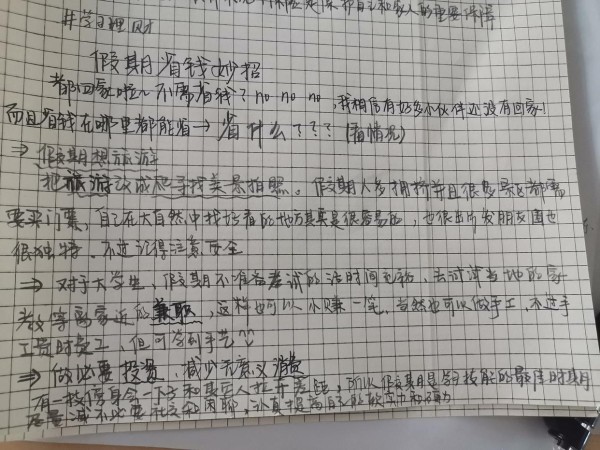 保障是保护自己和家人的重要保障
#学习理财
假期省钱妙招
都回家啦~不需省钱？no no no，我相信有好多小伙伴还没有回家！
而且省钱在哪里都能省→省什么？？？(看情况)
⇒ 假期想旅游
把旅游改成和寻找美景拍照。假期人多拥挤并且很多景区都需
要买门票，自己在大自然中找好看的地方其实是很容易的，也很出片发朋友圈也
很独特，不过记得注意安全
⇒ 对于大学生，假期不准备考试的话时间充裕，去试试当地的家
教等离家近的兼职，这样也可以小赚一笔，当然也可以做手工，不过手
工费时费工，但可学到手艺^^
⇒ 做必要投资，减少无意义消费
有一技傍身会一下子和其它人拉开差距，所以假期是学技能的最佳时期
尽量减不必要社交和闲聊，认真提高自己的